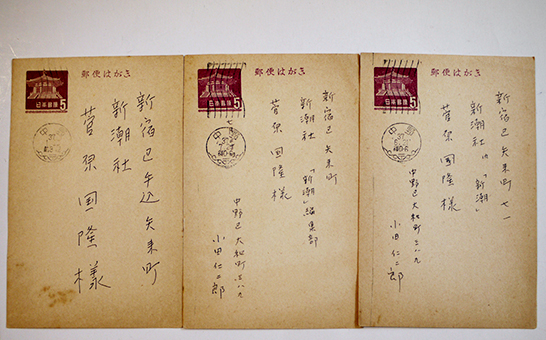 郵便はがき
日本郵便
5
新宿区牛込矢来町
新潮社
菅原国隆様
郵便はがき
日本郵便
5
中野
新宿区矢来町
新潮社「新潮」編集部
菅原国隆様
中野区大和町三八九
小田仁二郎
郵便はがき
日本郵便
5
中野
新宿区矢来町七一
新潮社内「新潮」
菅原国隆様
中野区大和町三八九
小田仁二郎